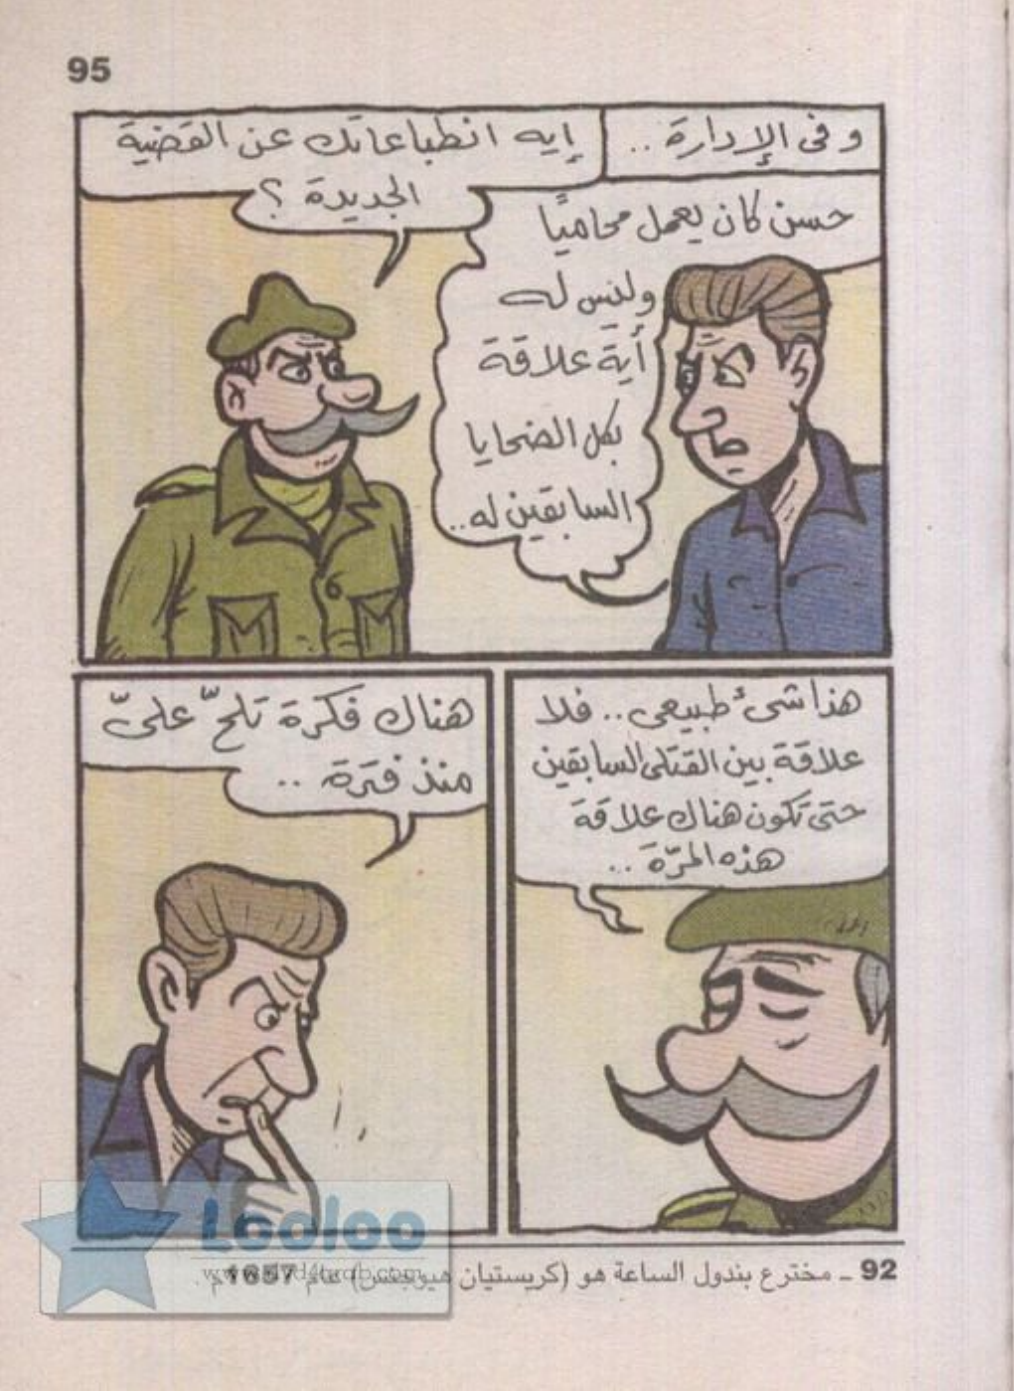 95
وفى الإدارة ..
إيه انطباعاتك عن القضية
الجديدة ؟
حسن كان يعمل محاميًا
وليس له
أية علاقة
بكل الضحايا
السابقين له ..
هذا شىء طبيعى .. فلا
علاقة بين القتلى السابقين
حتى تكون هناك علاقة
هذه المرّة ..
هناك فكرة تلحّ علىّ
منذ فترة ..
92 ـ مخترع بندول الساعة هو (كريستيان هيوجنس) عام 1657 م.
Looloo